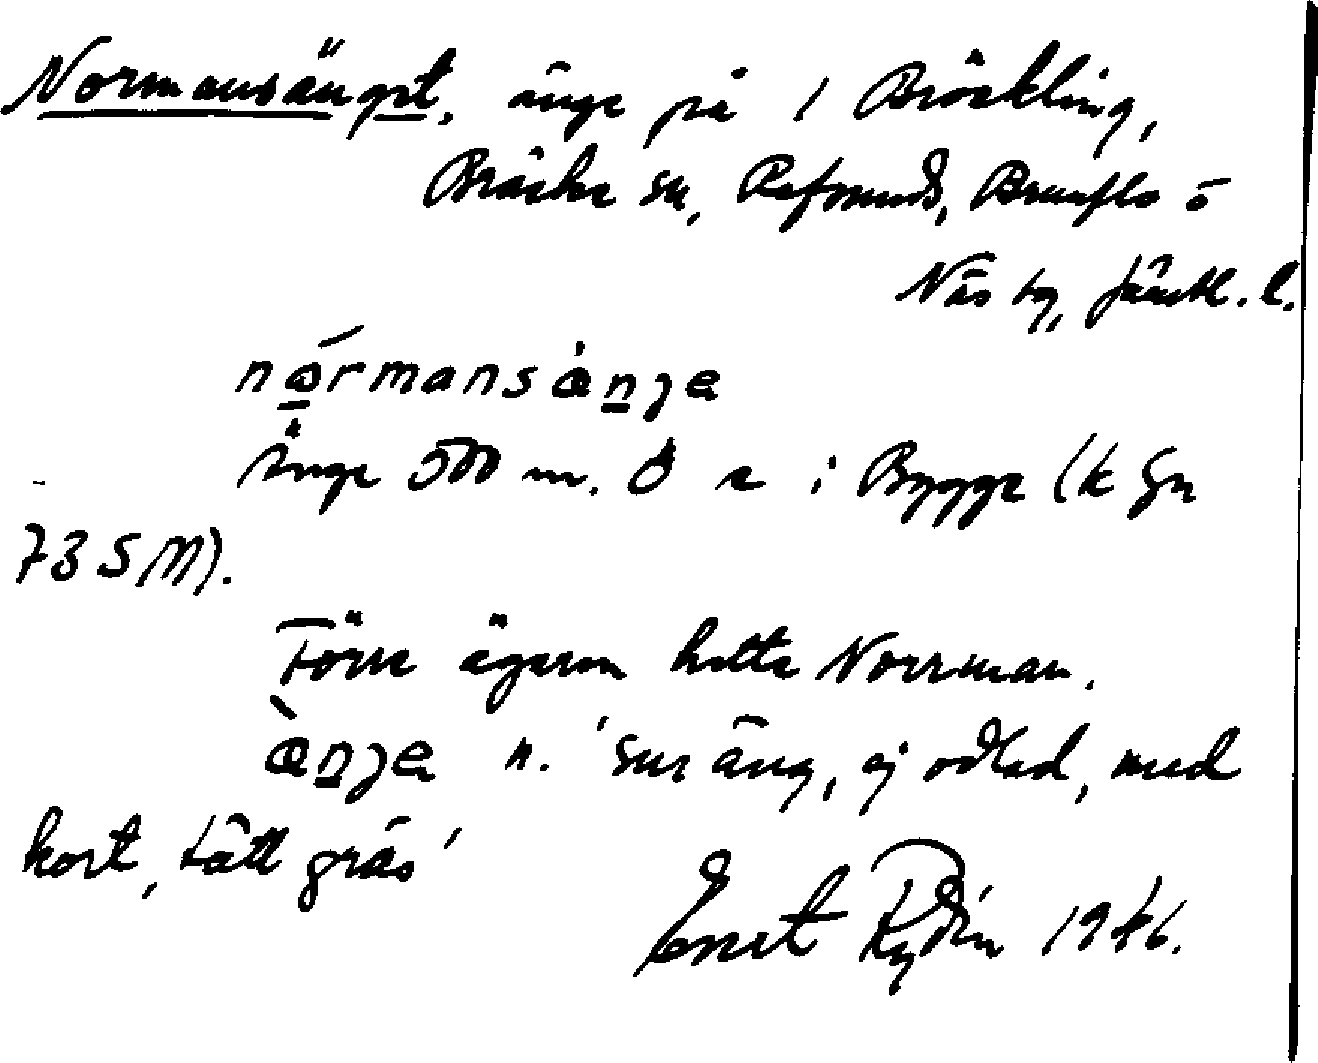 Normansänget, änge på 1 Bräckling,
Bräcke sn, Refsunds, Brunflo o
Näs tg, Jämtl. l.
nǿrmansànʒe
Änge 500 m. Ö e i Bygge (k
73 S M).
Förre ägaren hette Norrman.
ànʒe n. 'sur äng, ej odlad, med
kort, tätt gräs'
Ernst Rydén 1946.